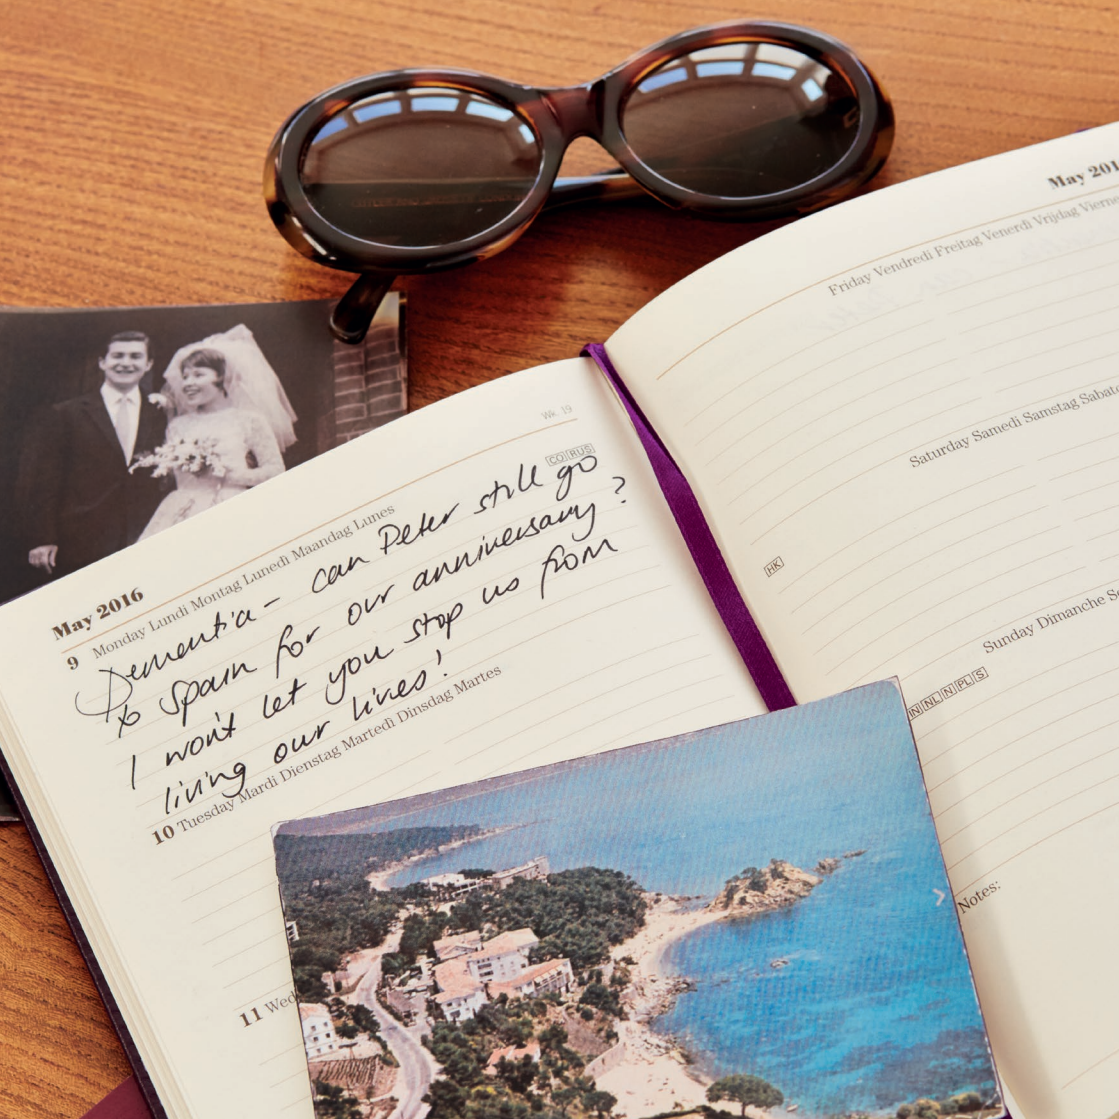 Wk. 19
May 2016
9 Monday Lundi Montag Lunedì Maandag Lunes
CO RUS
Dementia - can Peter still go
to Spain for our anniversary?
I won't let you stop us from
living our lives!
10 Tuesday Mardi Dienstag Martedì Dinsdag Martes
11 Wed
May 201
Friday Vendredi Freitag Venerdì Vrijdag Vierne
Saturday Samedi Samstag Sabato
HK
Sunday Dimanche So
N NL N PL S
Notes: